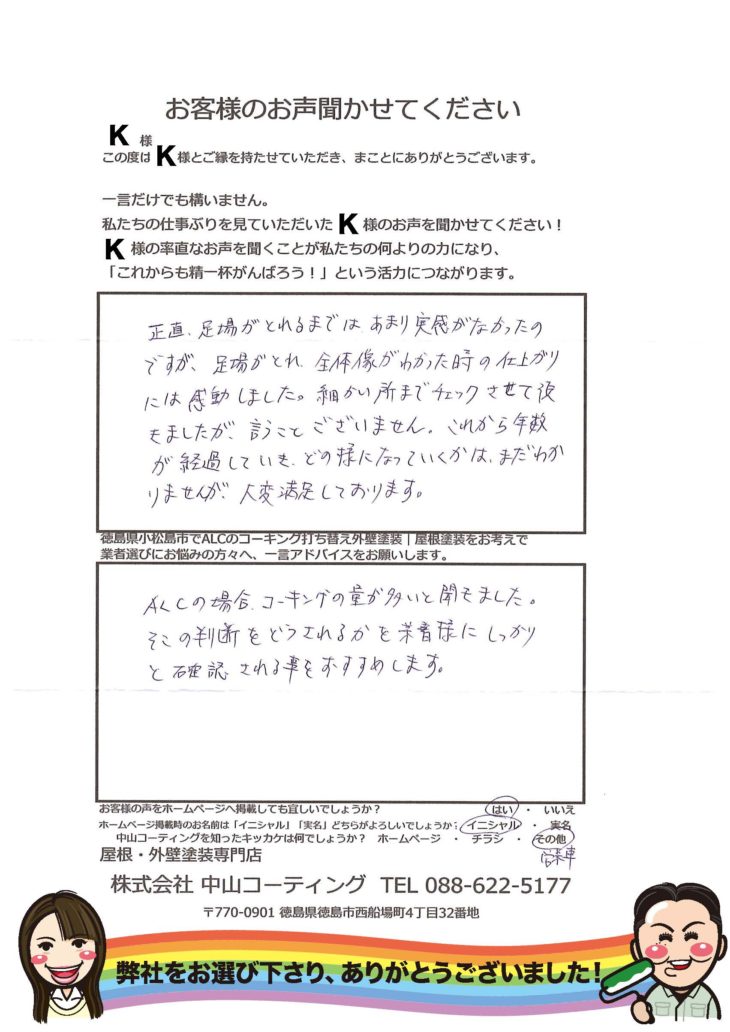 お客様のお声聞かせてください
K 様
この度は K 様とご縁を持たせていただき、まことにありがとうございます。
一言だけでも構いません。
私たちの仕事ぶりを見ていただいた K 様のお声を聞かせてください！
K 様の率直なお声を聞くことが私たちの何よりの力になり、
「これからも精一杯がんばろう！」という活力につながります。
正直、足場がとれるまでは あまり実感がなかったの
ですが、足場がとれ、全体像がわかった時の仕上がり
には感動しました。細かい所までチェックさせて頂
きましたが、言うことございません。これから年数
が経過していき、どの様になっていくかは、まだわか
りませんが、大変満足しております。
徳島県小松島市でALCのコーキング打ち替え外壁塗装｜屋根塗装をお考えで
業者選びにお悩みの方々へ、一言アドバイスをお願いします。
ALCの場合、コーキングの量が多いと聞きました。
そこの判断をどうされるかを業者様にしっかり
と確認される事をおすすめします。
お客様の声をホームページへ掲載しても宜しいでしょうか？ はい ・ いいえ
ホームページ掲載時のお名前は「イニシャル」「実名」どちらがよろしいでしょうか： イニシャル ・ 実名
中山コーティングを知ったキッカケは何でしょうか？ ホームページ ・ チラシ ・ その他
営業車
屋根・外壁塗装専門店
株式会社 中山コーティング TEL 088-622-5177
〒770-0901 徳島県徳島市西船場町4丁目32番地
弊社をお選び下さり、ありがとうございました！